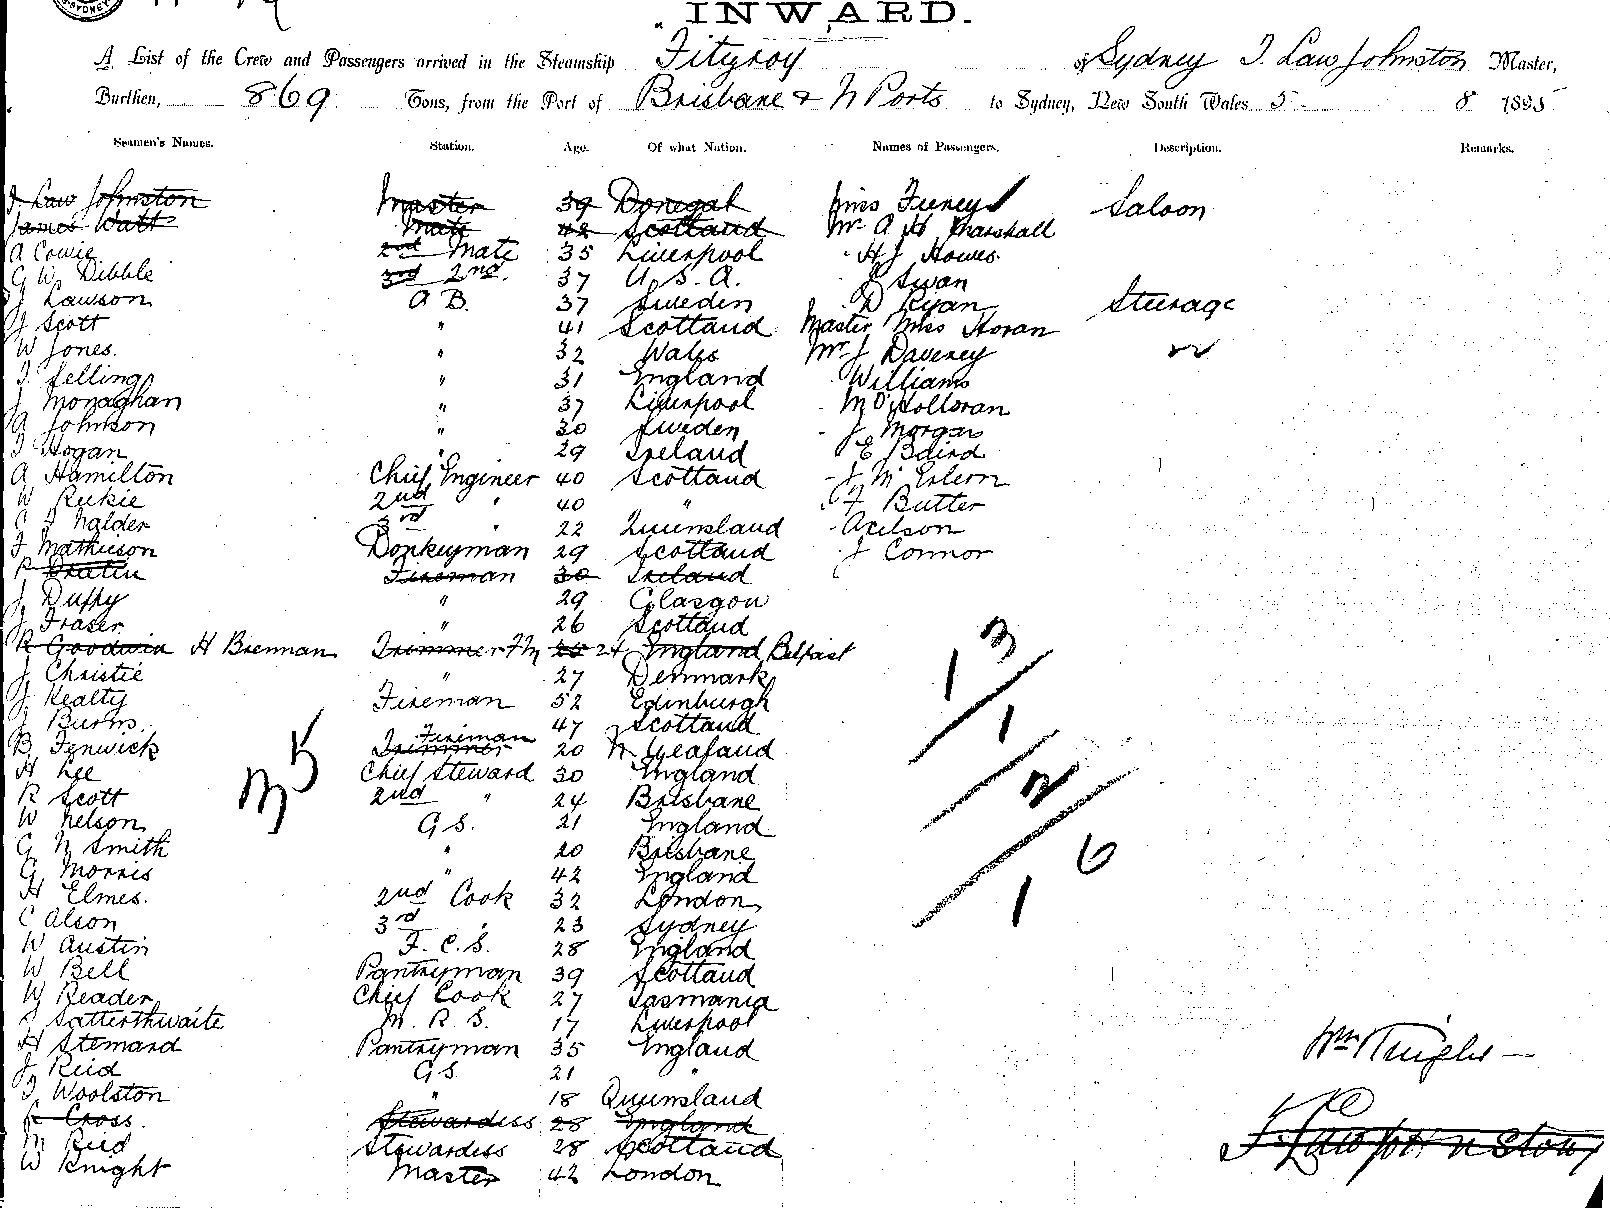 SYDNEY
INWARD.
A List of the Crew and Passengers arrived in the Steamship Fitzroy of Sydney T. Law Johnston Master,
Burthen, 869 Tons, from the Port of Brisbane & N Ports to Sydney, New South Wales 5 8 1895
Seamen's Names. Station. Age. Of what Nation. Names of Passengers. Description. Remarks.
T Law Johnston Master 39 Donegal Miss Feeney Saloon
James Watt Mate 42 Scotland Mr A W Marshall
A Cowie 2nd Mate 35 Liverpool H J Howes
G W Dibble 3rd 2nd. 37 U. S. A. J Swan
J Lawson A B. 37 Sweden D Ryan Steerage
J Scott " 41 Scotland Master Miss Horan
W Jones. " 32 Wales Mr J Daveney
T. Selling " 31 England Williams
J Monaghan " 37 Liverpool M O'Holloran
A Johnson " 30 Sweden J Morgan
T Hogan " 29 Ireland E Baird
A Hamilton Chief Engineer 40 Scotland J McEslern
W Reekie 2nd " 40 " F Butter
Nalder 3rd " 22 Queensland Axelson
F Mathieson Donkeyman 29 Scotland J Connor
P Fireman 30 Ireland
J Duffy " 29 Glasgow
J Fraser " 26 Scotland
R Goodwin H Brennan Trimmer Fm 25 24 England Belfast
J Christie " 27 Denmark
J Kealty Fireman 52 Edinburgh
J Burns. 47 Scotland
B Fenwick Trimmer Fireman 20 N. Zealand
H Lee Chief Steward 30 England
R Scott 2nd " 24 Brisbane
W Nelson G S. 21 England
G N Smith " 20 Brisbane
G Morris " 42 England
H Elmes. 2nd Cook 32 London
C Alson 3rd " 23 Sydney
W Austin F. C. S. 28 England
W Bell Pantryman 39 Scotland
W Reader Chief Cook 27 Tasmania
J Satterthwaite M. R. S. 17 Liverpool
H Stemard Pantryman 35 England
J Reid G S. 21 "
T Woolston " 18 Queensland
Cross. Stewardess 28 England
M Reid Stewardess 28 Scotland
W Knight Master 42 London
13
1
2
16
Wm Knight
T. Law Johnston